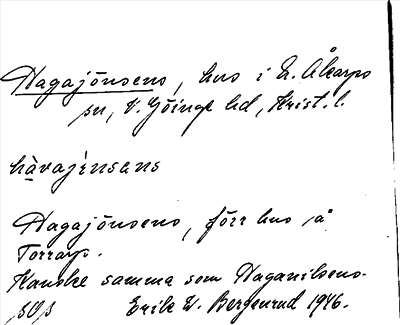 Hagajönsens, hus i N. Åkarps
sn, V. Göinge hd, Krist. l.
hàvajǹsens
Hagajönsens, förr hus å
Torrarp.
Kanske samma som Haganilsens-
Erik W. Bergenrud 1946.